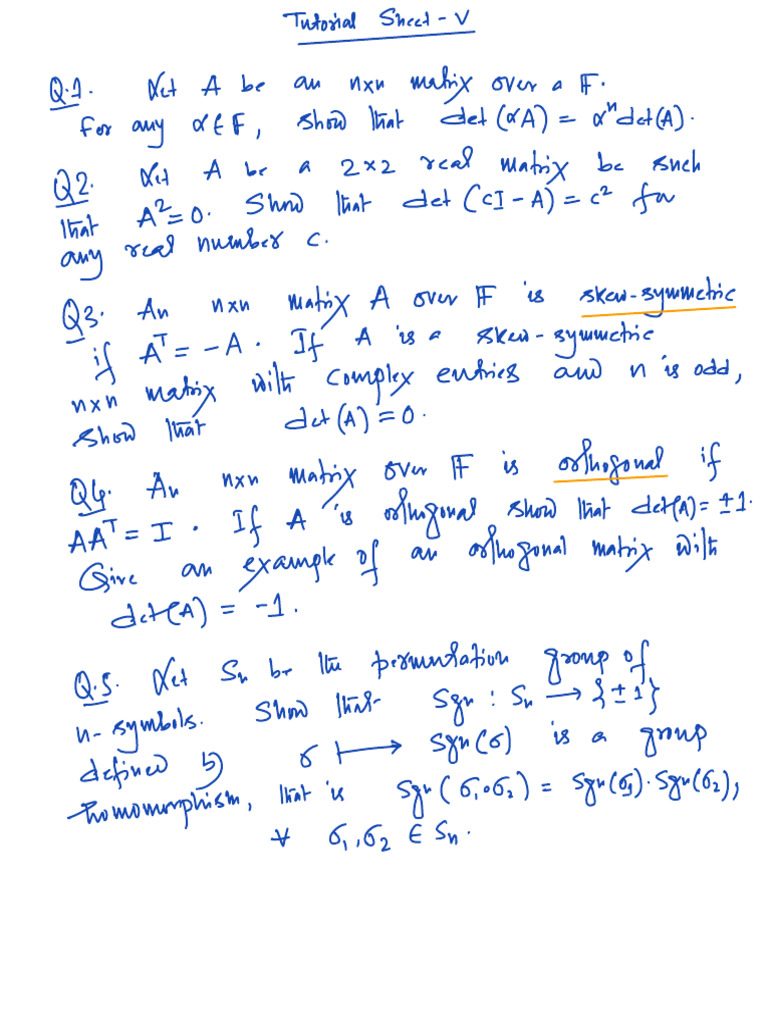 Tutorial Sheet - V
Q.1. Let A be an n×n matrix over a F.
For any α∈F, show that det(αA) = αⁿdet(A).
Q2. Let A be a 2×2 real matrix be such
that A²=0. Show that det(cI-A)=c² for
any real number c.
Q3. An n×n matrix A over F is skew-symmetric
if Aᵀ = -A. If A is a skew-symmetric
n×n matrix with complex entries and n is odd,
show that det(A)=0.
Q4. An n×n matrix over F is orthogonal if
AAᵀ = I. If A is orthogonal show that det(A)= ±1.
Give an example of an orthogonal matrix with
det(A) = -1.
Q.5. Let Sₙ be the permutation group of
n-symbols. Show that Sgn : Sₙ → {±1}
defined by σ ↦ Sgn(σ) is a group
homomorphism, that is Sgn(σ₁∘σ₂) = Sgn(σ₁).Sgn(σ₂),
∀ σ₁,σ₂ ∈ Sₙ.